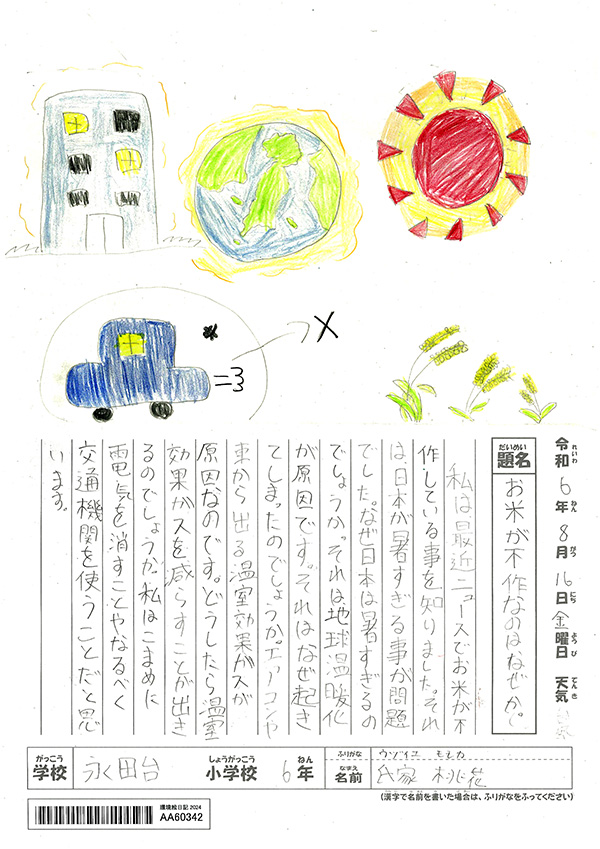 令和6年8月16日金曜日 天気
れいわ ねん がつ にち ようび てんき
だいめい
題名 お米が不作なのはなぜか。
私は最近ニュースでお米が不
作している事を知りました。それ
は日本が暑すぎる事が問題
でした。なぜ日本は暑すぎるの
でしょうか。それは地球温暖化
が原因です。それはなぜ起き
てしまったのでしょうか。エアコンや
車から出る温室効果ガスが
原因なのです。どうしたら温室
効果ガスを減らすことが出き
るのでしょうか。私はこまめに
電気を消すことやなるべく
交通機関を使うことだと思
います。
がっこう しょうがっこう ねん ふりがな
学校 永田台 小学校 6年 なまえ 名前 氏家 桃花
(漢字で名前を書いた場合は、ふりがなをふってください)
環境絵日記 2024
AA60342